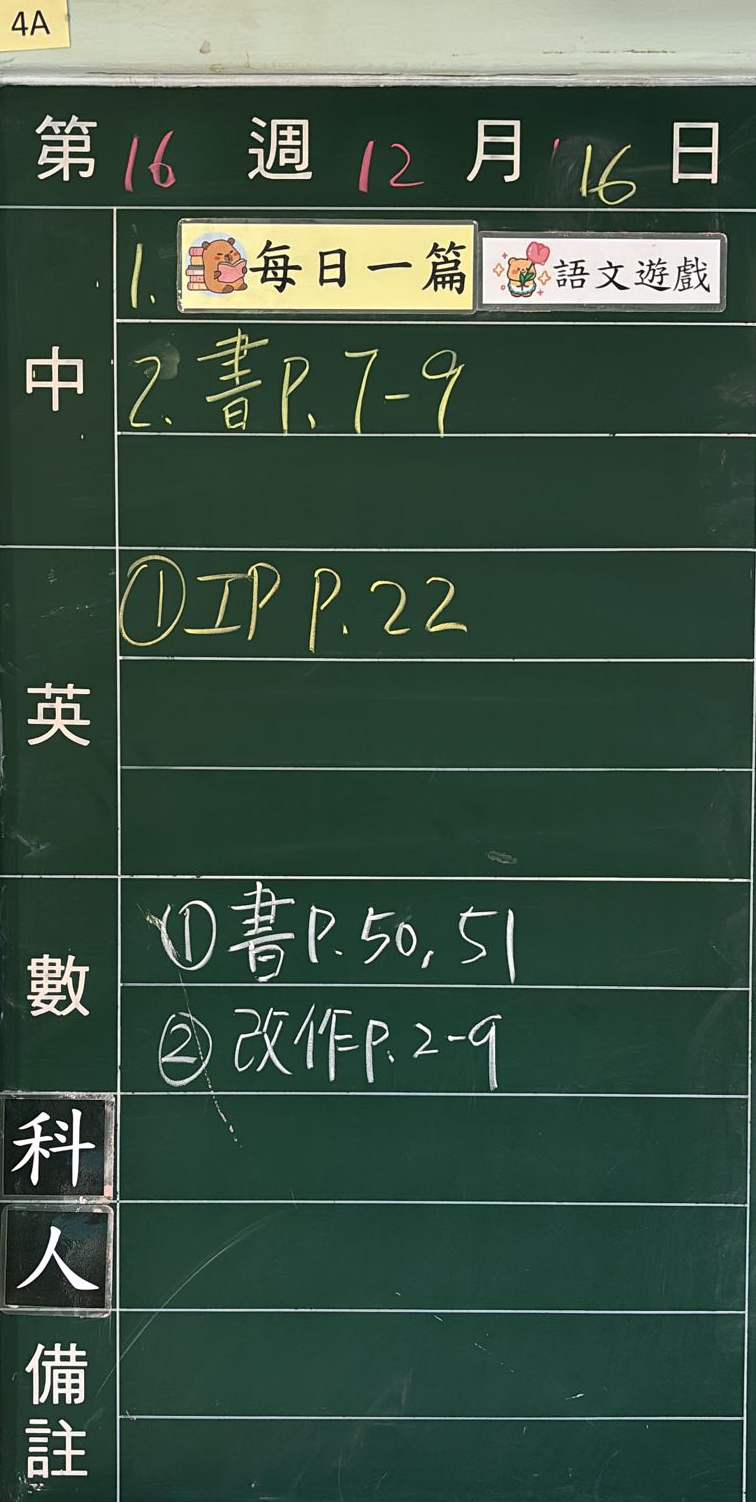 4A
第 16 週 12 月 16 日
中
1. 每日一篇 語文遊戲
2. 書P. 7-9
英
①IP P. 22
數
①書P. 50, 51
②改作P. 2-9
科
人
備註